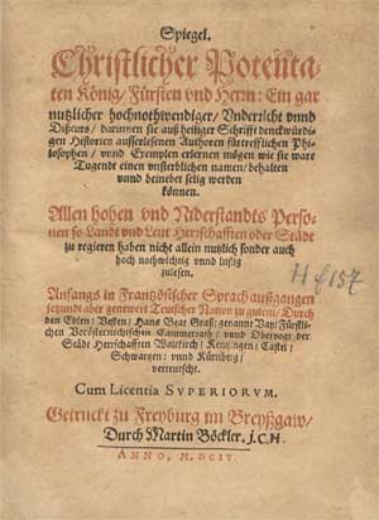 Spiegel.
Christlicher Potenta-
ten König/ Fürsten vnd Herrn: Ein gar
nutzlicher hochnothwendiger/ Vnderricht vnnd
Discurs/ darinnen sie auß heiliger Schrifft denckwürdi-
gen Historien ausserlesenen Authoren fürtrefflichen Phi-
losophen/ vnnd Exemplen erlernen mögen wie sie ware
Tugendt einen vnsterblichen namen/ behalten
vnnd beinebet selig werden
können.
Allen hohen vnd Niderstandts Perso-
nen so Landt vnd Leut Herrschafften oder Städt
zu regieren haben nicht allein nutzlich sonder auch
hoch nothwichtig vnnd lustig
zulesen.
H f 157
Anfangs in Frantzösischer Sprach außgangen
jetzundt aber gemeiner Teutscher Nation zu gutem/ Durch
den Edlen/ Vesten/ Hans Beat Graß/ genannt Vay/ Fürstli-
chen Vorösterreichischen Cammerrath/ vnnd Obervogt der
Städt Herrschafften Waltkirch/ Kentzingen/ Castel/
Schwartzen: vnnd Kürnberg/
verteutscht.
Cum Licentia SVPERIORVM.
Getruckt zu Freyburg im Breyßgaw/
Durch Martin Böckler. j.C.H.
ANNO, M. DCIV.